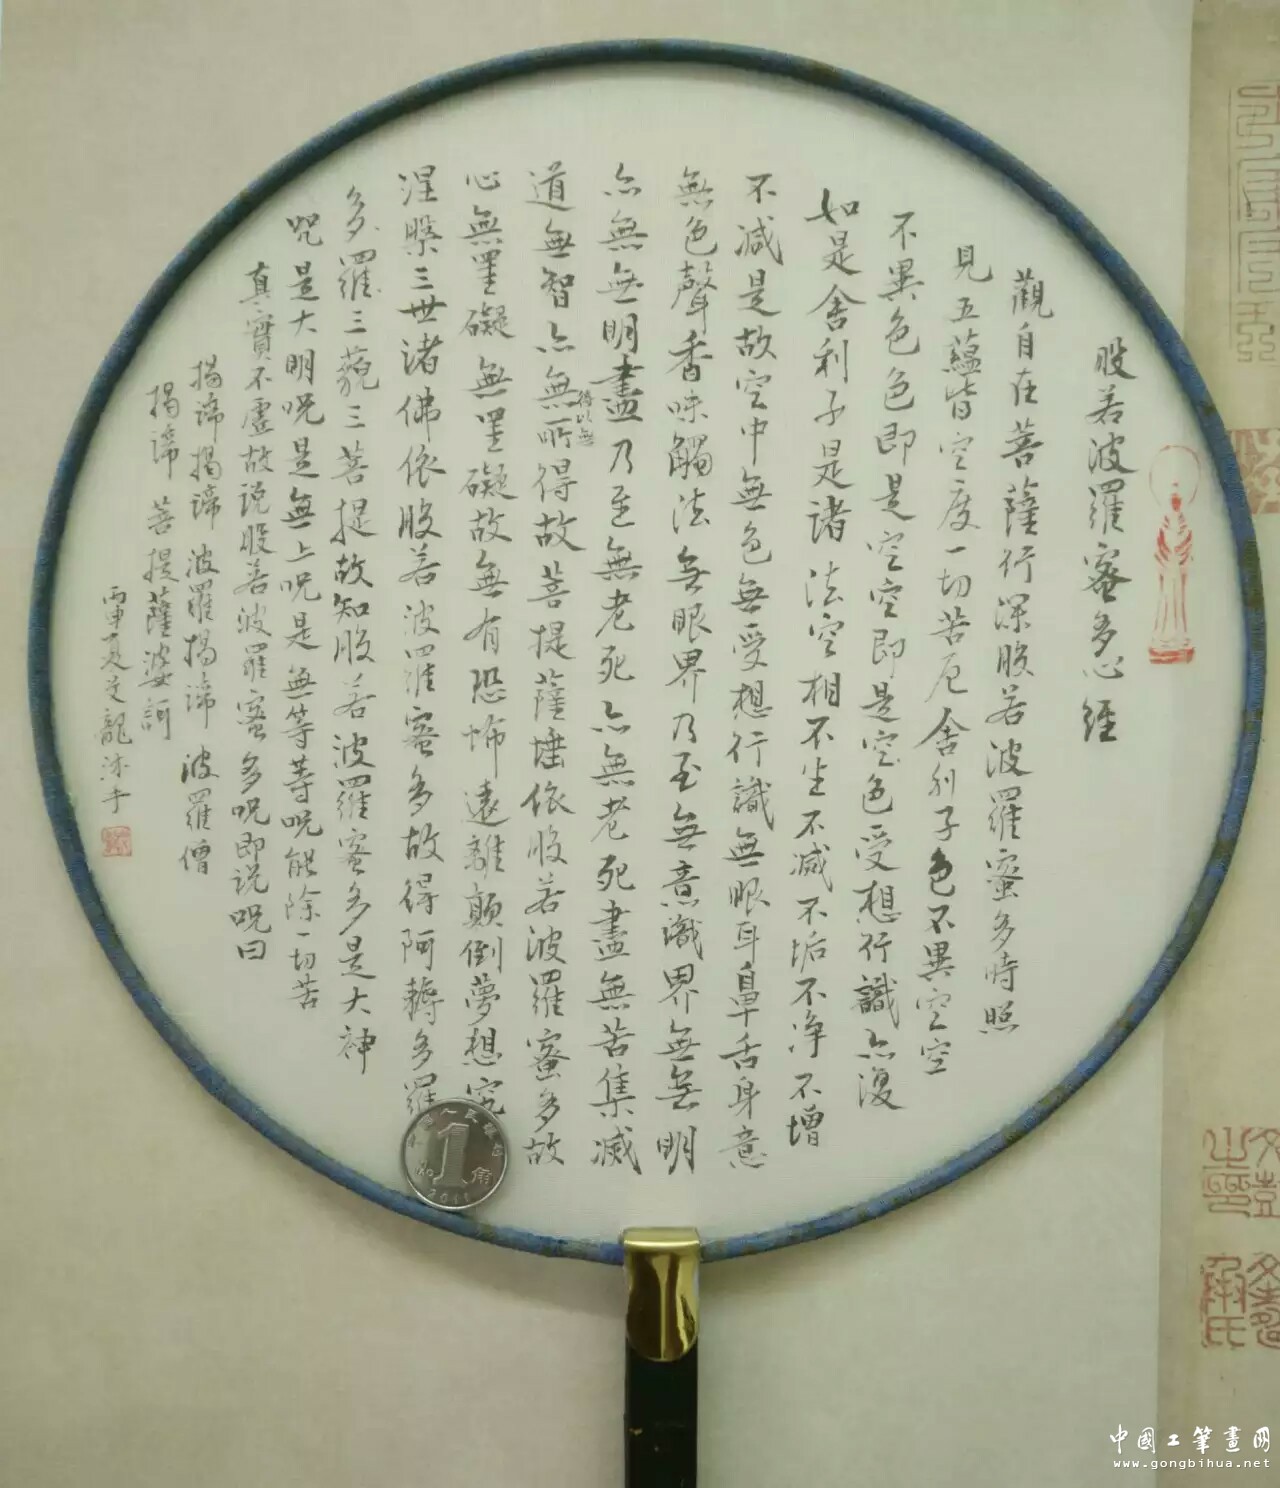 般若波羅蜜多心經
觀自在菩薩行深般若波羅蜜多時照
見五蘊皆空度一切苦厄舍利子色不異空空
不異色色即是空空即是空色受想行識亦復
如是舍利子是諸法空相不生不滅不垢不净不增
不減是故空中無色無受想行識無眼耳鼻舌身意
無色聲香味觸法無眼界乃至無意識界無無明
亦無無明盡乃至無老死亦無老死盡無苦集滅
道無智亦無所得故菩提薩埵依般若波羅蜜多故
得以無
心無罣礙無罣礙故無有恐怖遠離顛倒夢想究
涅槃三世诸佛依般若波羅蜜多故得阿耨多羅
多羅三藐三菩提故知般若波羅蜜多是大神
咒是大明咒是無上咒是無等等咒能除一切苦
真實不虛故说般若波羅蜜多咒即说咒曰
揭諦揭諦波羅揭諦波羅僧
揭諦菩提薩婆訶
丙申夏
中國工筆畫网
www.gongbihua.net
1
角
2011